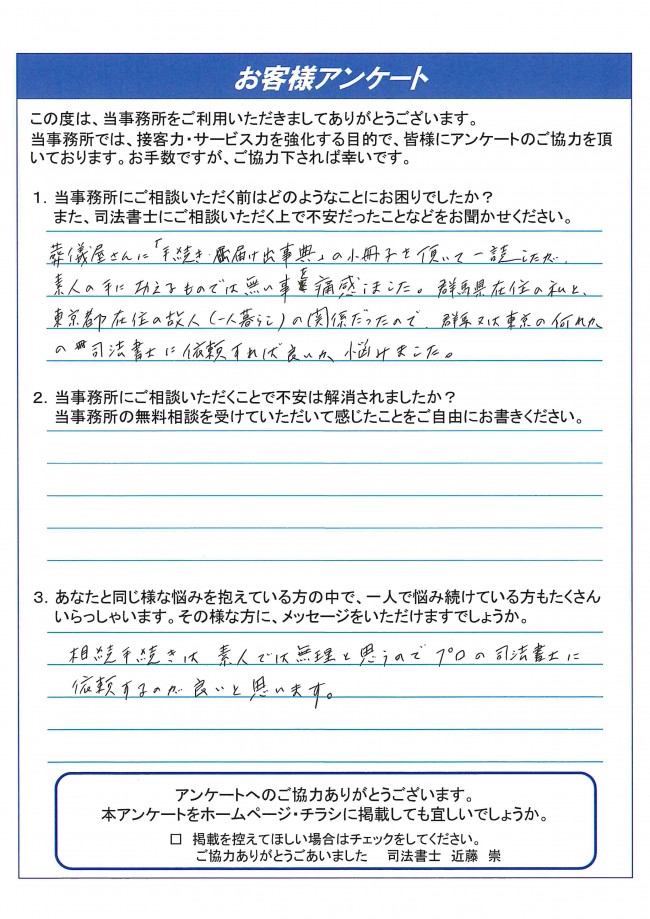 お客様アンケート
この度は、当事務所をご利用いただきましてありがとうございます。
当事務所では、接客力・サービス力を強化する目的で、皆様にアンケートのご協力を頂
いております。お手数ですが、ご協力下されば幸いです。
1. 当事務所にご相談いただく前はどのようなことにお困りでしたか？
また、司法書士にご相談いただく上で不安だったことなどをお聞かせください。
葬儀屋さんに「手続き・届け出事典」の小冊子を頂いて一読したが、
素人の手に功えるものでは無い事を痛感しました。群馬県在住の私と、
東京都在住の故人（一人暮らし）の関係だったので、群馬又は東京の何れか
の司法書士に依頼すれば良いか悩みました。
2. 当事務所にご相談いただくことで不安は解消されましたか？
当事務所の無料相談を受けていただいて感じたことをご自由にお書きください。
3. あなたと同じ様な悩みを抱えている方の中で、一人で悩み続けている方もたくさん
いらっしゃいます。その様な方に、メッセージをいただけますでしょうか。
相続手続きは素人では無理と思うのでプロの司法書士に
依頼するのが良いと思います。
アンケートへのご協力ありがとうございます。
本アンケートをホームページ・チラシに掲載しても宜しいでしょうか。
□ 掲載を控えてほしい場合はチェックをしてください。
ご協力ありがとうごあいました 司法書士 近藤 崇